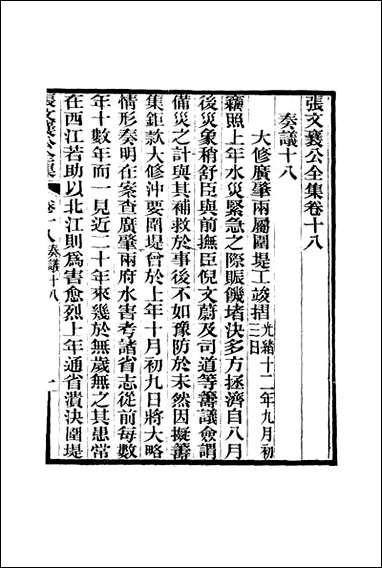 張文襄公全集卷十八
奏議十八
大修廣肇兩屬圍堤工竣摺光緒十二年九月初三日
竊照上年水災緊急之際賑饑堵決多方拯濟自八月
後災象稍舒臣與前撫臣倪文蔚及司道等籌議僉謂
備災之計與其補救於事後不如豫防於未然因擬籌
集鉅款大修沖要圍堤曾於上年十月初九日將大略
情形奏明在案查廣肇兩府水害考諸省志從前每數
年十數年而一見近二十年來幾於無歲無之其患常
在西江若助以北江則爲害愈烈上年通省潰決圍堤
張文襄公全集 卷十八 奏議十八 一